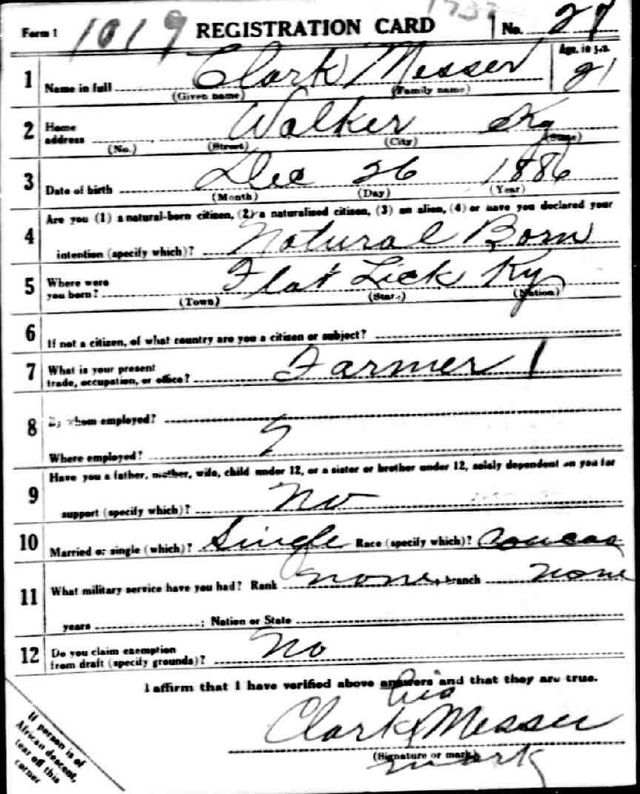 Form 1 1019 REGISTRATION CARD No. 27
1 Name in full Clark Messer Age, in yrs. 21
(Given name) (Family name)
2 Home address Walker Ky
(No.) (Street) (City) (State)
3 Date of birth Dec 26 1886
(Month) (Day) (Year)
4 Are you (1) a natural-born citizen, (2) a naturalized citizen, (3) an alien, (4) or have you declared your
intention (specify which)? Natural Born
5 Where were you born? Flat Lick Ky
(Town) (State) (Nation)
6 If not a citizen, of what country are you a citizen or subject?
7 What is your present trade, occupation, or office? Farmer
8 By whom employed?
Where employed?
9 Have you a father, mother, wife, child under 12, or a sister or brother under 12, solely dependent on you for
support (specify which)? No
10 Married or single (which)? Single Race (specify which)? Caucas
11 What military service have you had? Rank none, branch none
years ; Nation or State
12 Do you claim exemption from draft (specify grounds)? No
I affirm that I have verified above answers and that they are true.
his
Clark X Messer
(Signature or mark)
mark
If person is of
African descent,
tear off this
corner